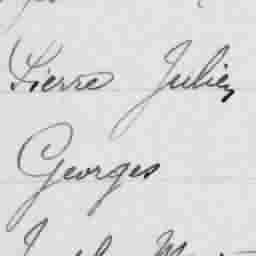 Pierre Julien
Georges